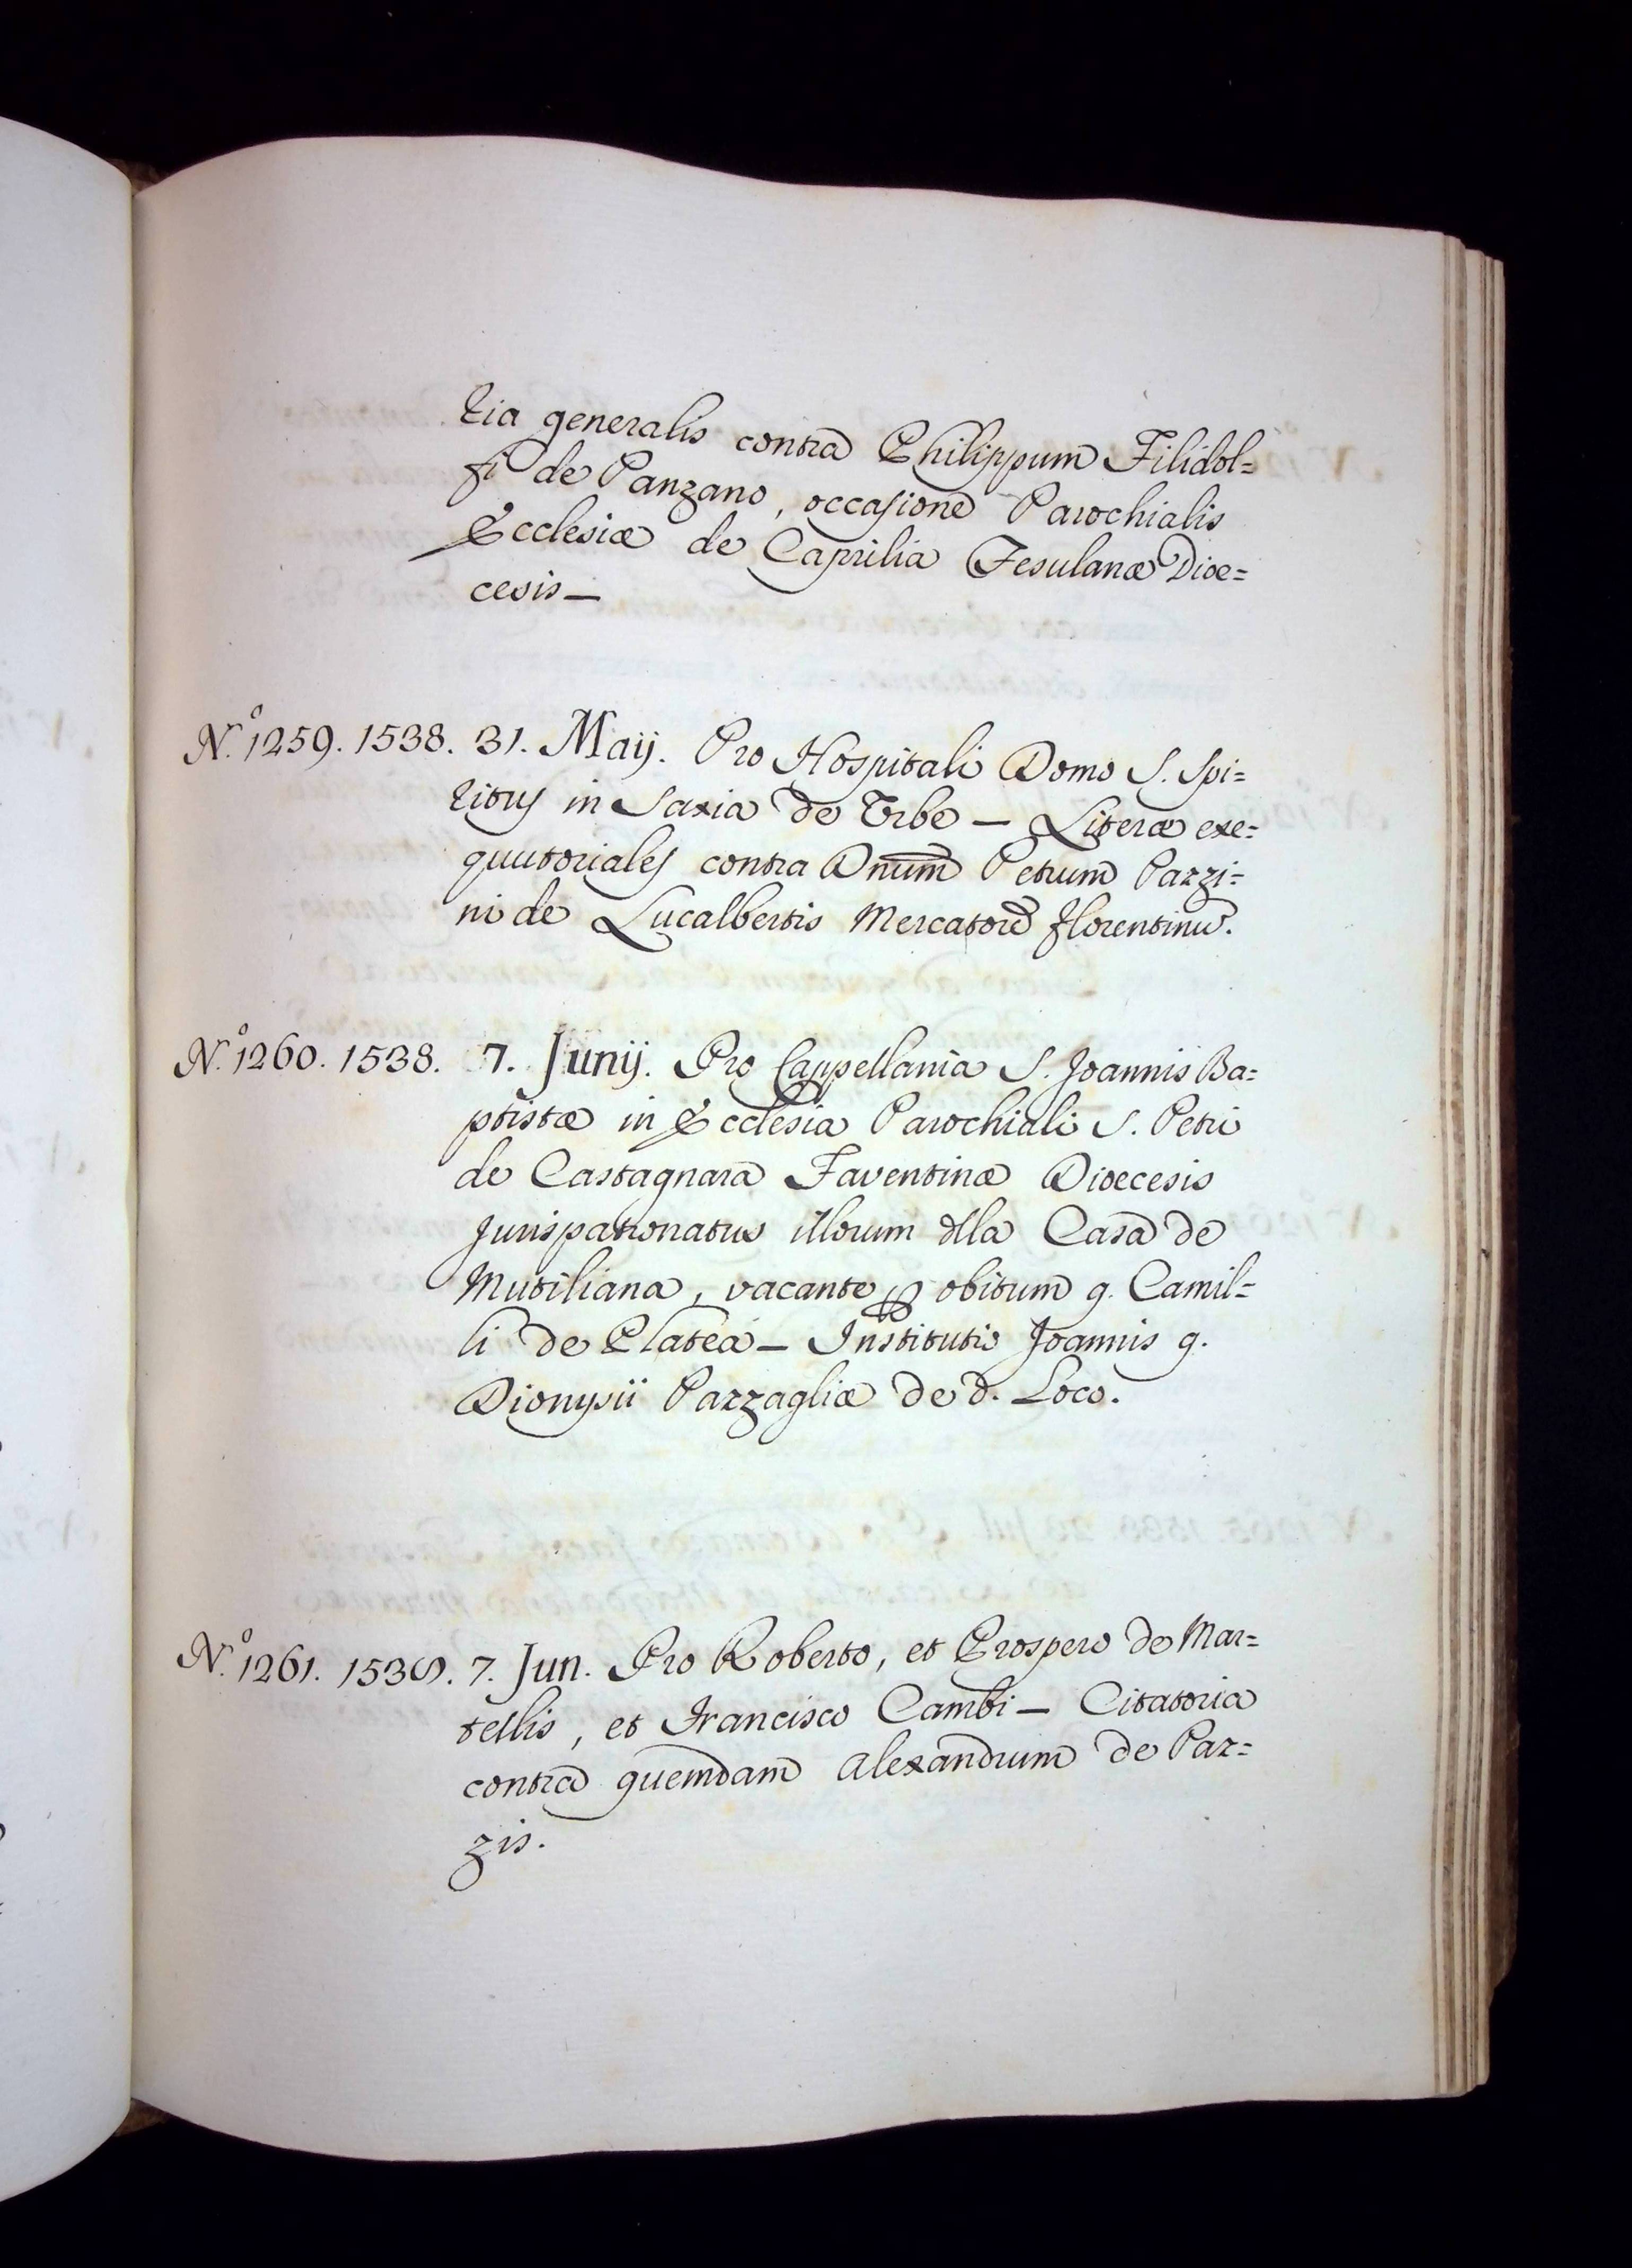 ria generalis contra Philippum Filidol=
fi de Panzano, occasione Parochialis
Ecclesiæ de Caprilia Fesulanæ Dioe=
cesis —
N.º 1259. 1538. 31. Maij. Pro Hospitali Domo S. Spi=
ritus in Saxia de Urbe — Literæ exe=
quutoriales contra Dnum Petrum Pazzi=
ni de Lucalbertis Mercatorē florentinū.
N.º 1260. 1538. 7. Junij. Pro Cappellania S. Joannis Ba=
ptistæ in Ecclesia Parochiali S. Petri
de Castagnara Faventinæ Dioecesis
Jurispatronatus illorum dlla Casa de
Mutiliana, vacante ꝑ obitum q. Camil=
li de Platea — Institutio Joannis q.
Dionysii Pazzagliæ de d. Loco.
N.º 1261. 1538. 7. Jun. Pro Roberto, et Prospero de Mar=
tellis, et Francisco Cambi — Citatoria
contra quemdam Alexandrum de Paz=
zis.